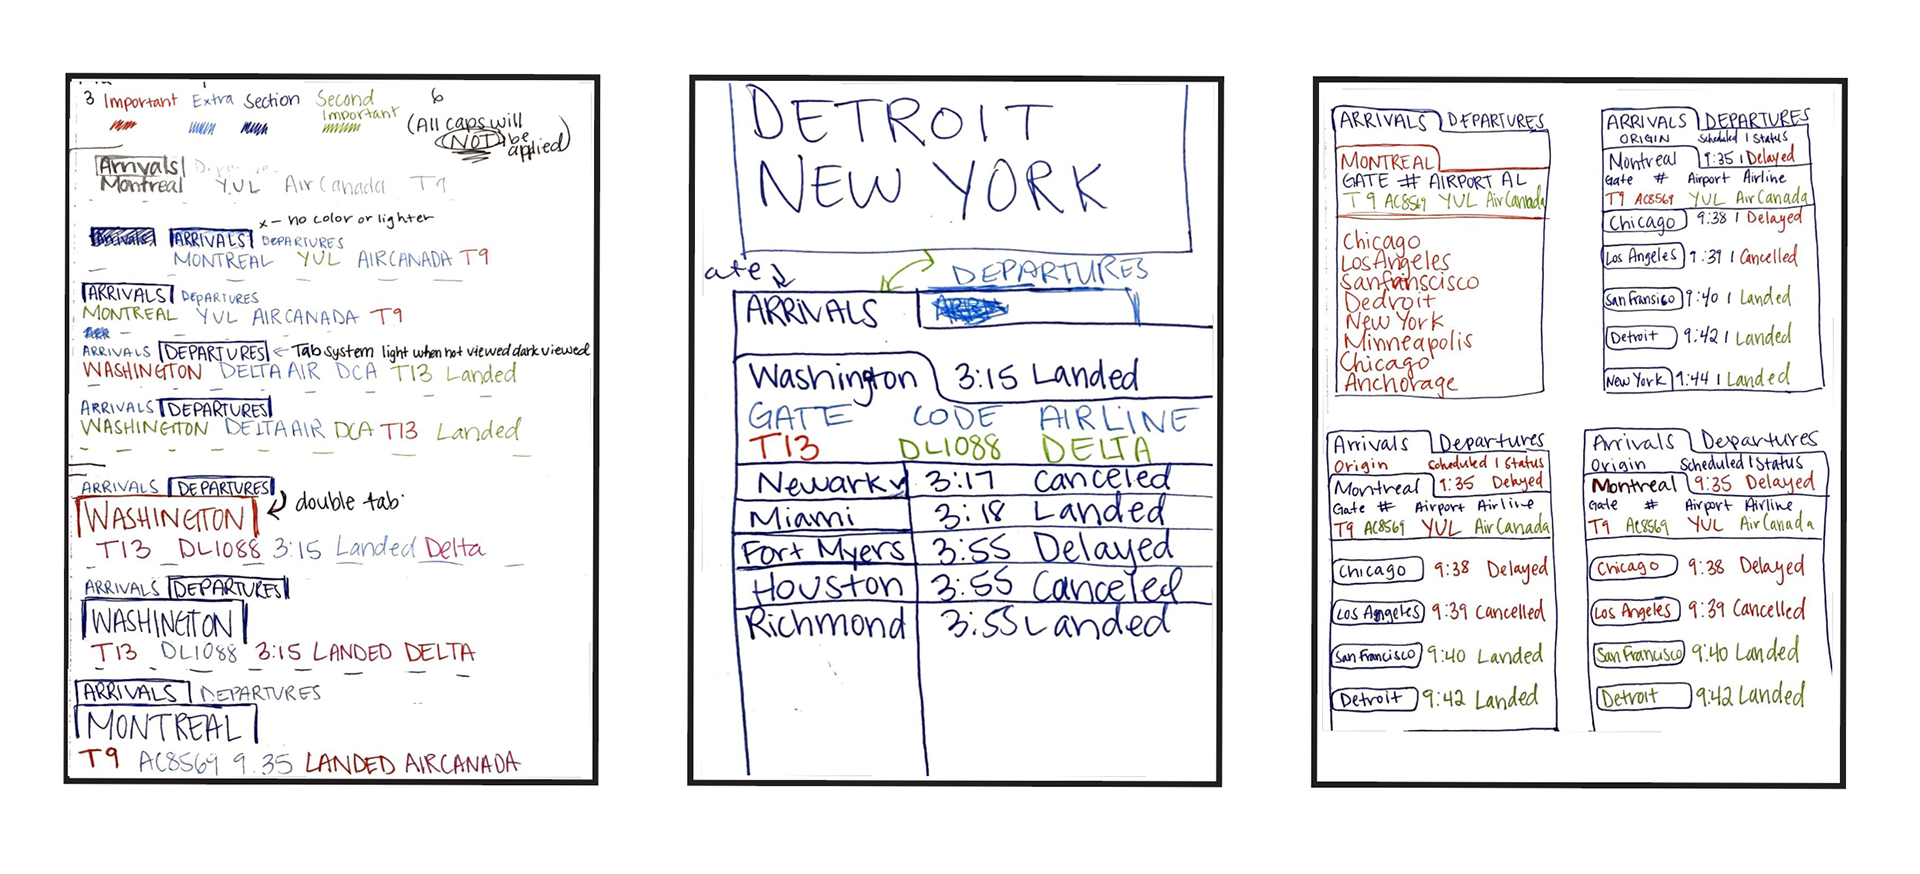 3 Important Extra Section Second Important 6
(All caps will NOT be applied)
Arrivals Depar
Montreal YUL Air Canada T9
x - no color or lighter
Arrivals ARRIVALS DEPARTURES
MONTREAL YUL AIRCANADA T9
ARRIVALS DEPARTURES
MONTREAL YUL AIRCANADA T9
ARRIVALS DEPARTURES ← Tab system light when not viewed dark viewed
WASHINGTON DELTA AIR DCA T13 Landed
ARRIVALS DEPARTURES
WASHINGTON DELTA AIR DCA T13 Landed
ARRIVALS DEPARTURES
double tab
WASHINGTON
T13 DL1088 3:15 Landed Delta
ARRIVALS DEPARTURES
WASHINGTON
T13 DL1088 3:15 LANDED DELTA
ARRIVALS DEPARTURES
MONTREAL
T9 AC8569 9.35 LANDED AIRCANADA
DETROIT
NEW YORK
ate
DEPARTURES
ARRIVALS
Washington 3:15 Landed
GATE CODE AIRLINE
T13 DL1088 DELTA
Newark 3:17 Canceled
Miami 3:18 Landed
Fort Myers 3:55 Delayed
Houston 3:55 Canceled
Richmond 3:55 Landed
ARRIVALS DEPARTURES
MONTREAL
GATE # AIRPORT AL
T9 AC8569 YUL Air Canada
Chicago
Los Angeles
Sanfrainscisco
Dedroit
New York
Minneapolis
Chicago
Anchorage
ARRIVALS DEPARTURES
ORIGIN Scheduled | Status
Montreal 9:35 | Delayed
Gate # Airport Airline
T9 AC8569 YUL Air Canada
Chicago 9:38 | Delayed
Los Angeles 9:39 | Cancelled
San Fransisco 9:40 | Landed
Detroit 9:42 | Landed
New York 9:44 | Landed
Arrivals Departures
Origin Scheduled | Status
Montreal 9:35 Delayed
Gate # Airport Airline
T9 AC8569 YUL Air Canada
Chicago 9:38 Delayed
Los Angeles 9:39 Cancelled
San Francisco 9:40 Landed
Detroit 9:42 Landed
Arrivals Departures
Origin Scheduled | Status
Montreal 9:35 Delayed
Gate # Airport Airline
T9 AC8569 YUL Air Canada
Chicago 9:38 Delayed
Los Angeles 9:39 Cancelled
San Francisco 9:40 Landed
Detroit 9:42 Landed